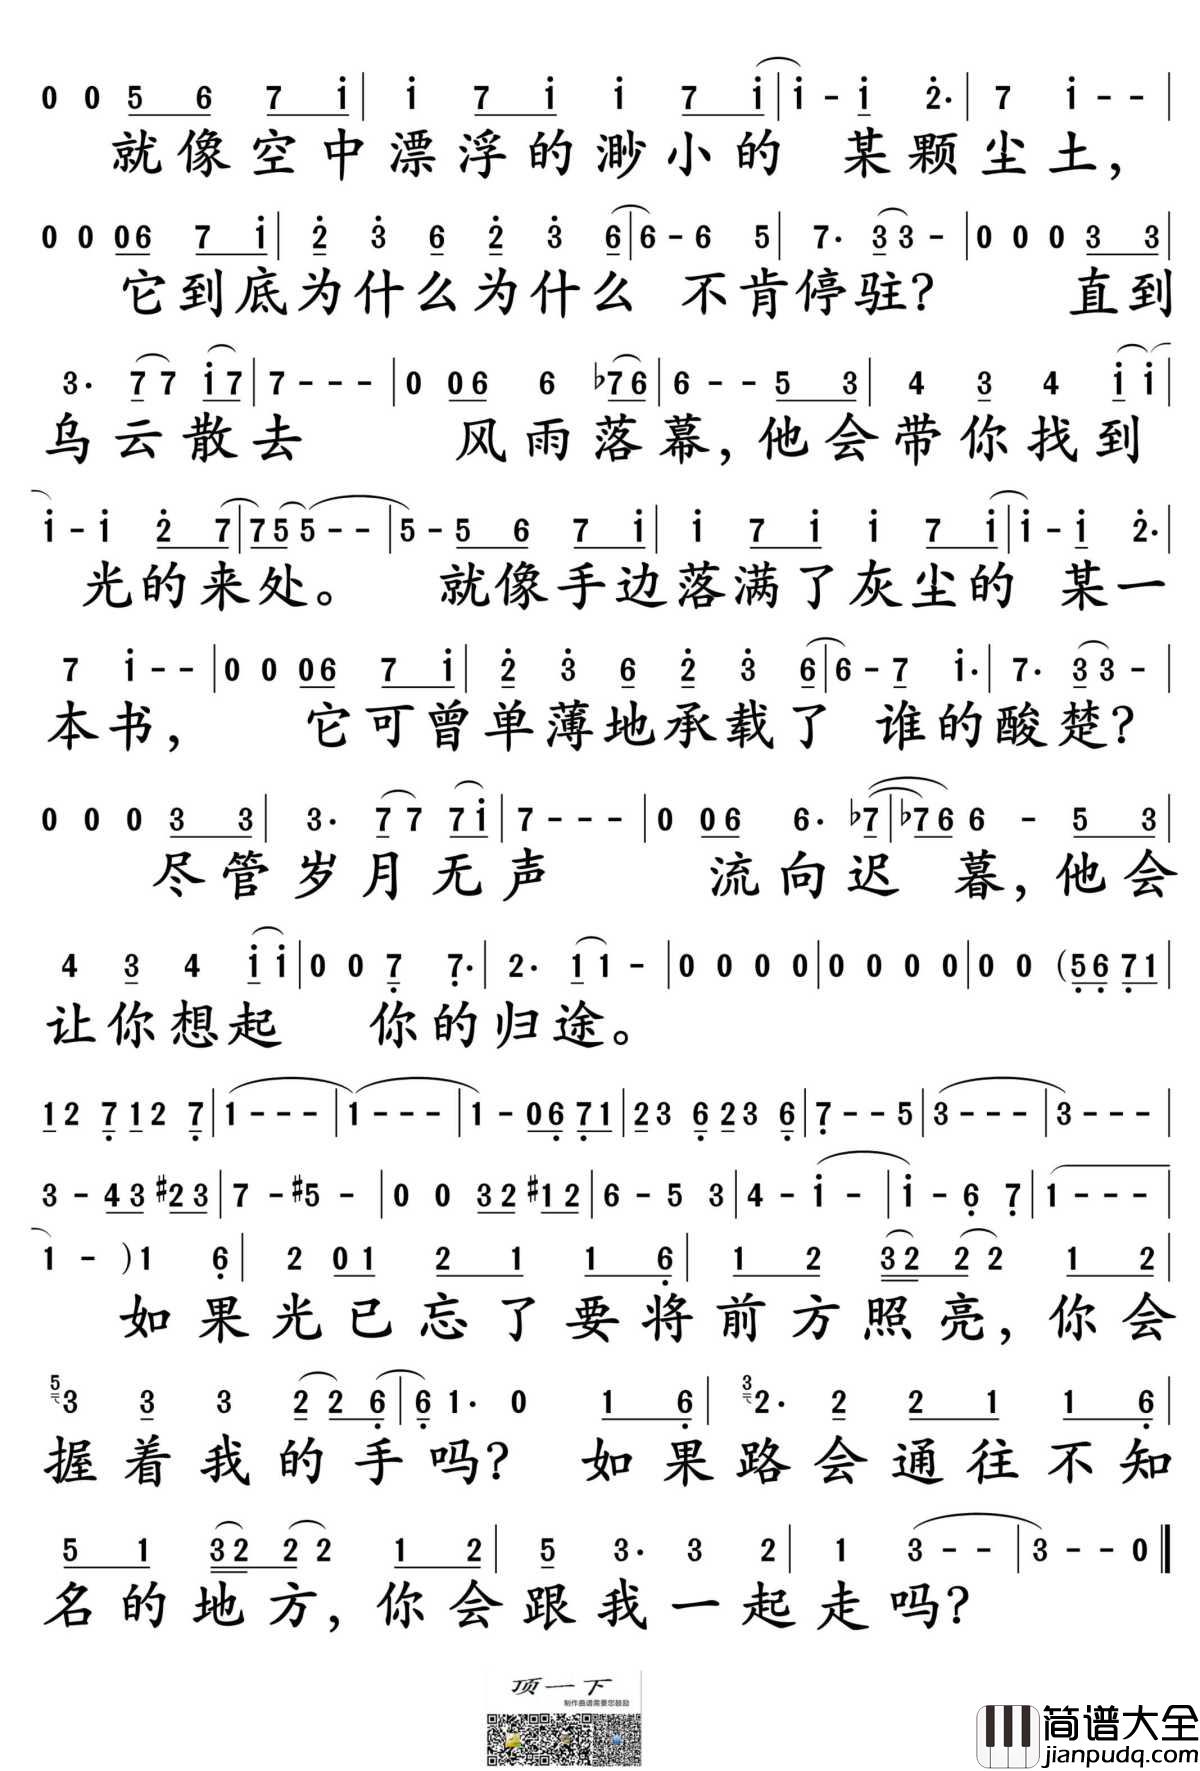 0 0 5 6 7 i | i 7 i i 7 i | i - i 2· | 7 i - - |
就像空中漂浮的渺小的 某颗尘土,
0 0 06 7 i | 2 3 6 2 3 6 | 6 - 6 5 | 7· 3 3 - | 0 0 0 3 3 |
它到底为什么为什么 不肯停驻? 直到
3· 7 7 i 7 | 7 - - - | 0 06 6 ♭7 6 | 6 - - 5 3 | 4 3 4 i i |
乌云散去 风雨落幕,他会带你找到
i - i 2 7 | 7 5 5 - - | 5 - 5 6 7 i | i 7 i i 7 i | i - i 2· |
光的来处。 就像手边落满了灰尘的 某一
7 i - - | 0 0 06 7 i | 2 3 6 2 3 6 | 6 - 7 i· | 7· 3 3 - |
本书, 它可曾单薄地承载了 谁的酸楚?
0 0 0 3 3 | 3· 7 7 7 i | 7 - - - | 0 06 6· ♭7 | ♭7 6 6 - 5 3 |
尽管岁月无声 流向迟 暮,他会
4 3 4 i i | 0 0 7 7· | 2· 1 1 - | 0 0 0 0 | 0 0 0 0 | 0 0 (5 6 7 1 |
让你想起 你的归途。
1 2 7 1 2 7 | 1 - - - | 1 - - - | 1 - 0 6 7 1 | 2 3 6 2 3 6 | 7 - - 5 | 3 - - - | 3 - - - |
3 - 4 3 #2 3 | 7 - #5 - | 0 0 3 2 #1 2 | 6 - 5 3 | 4 - i - | i - 6 7 | 1 - - - |
1 - ) 1 6 | 2 0 1 2 1 1 6 | 1 2 3 2 2 2 1 2 |
如果光已忘了要将前方照亮,你会
5 3 3 3 2 2 6 | 6 1· 0 1 6 | 3 2· 2 2 1 1 6 |
握着我的手吗? 如果路会通往不知
5 1 3 2 2 2 1 2 | 5 3· 3 2 | 1 3 - - | 3 - - 0 ‖
名的地方,你会跟我一起走吗?
顶一下
制作曲谱需要您鼓励
简谱大全
jianpudq.com